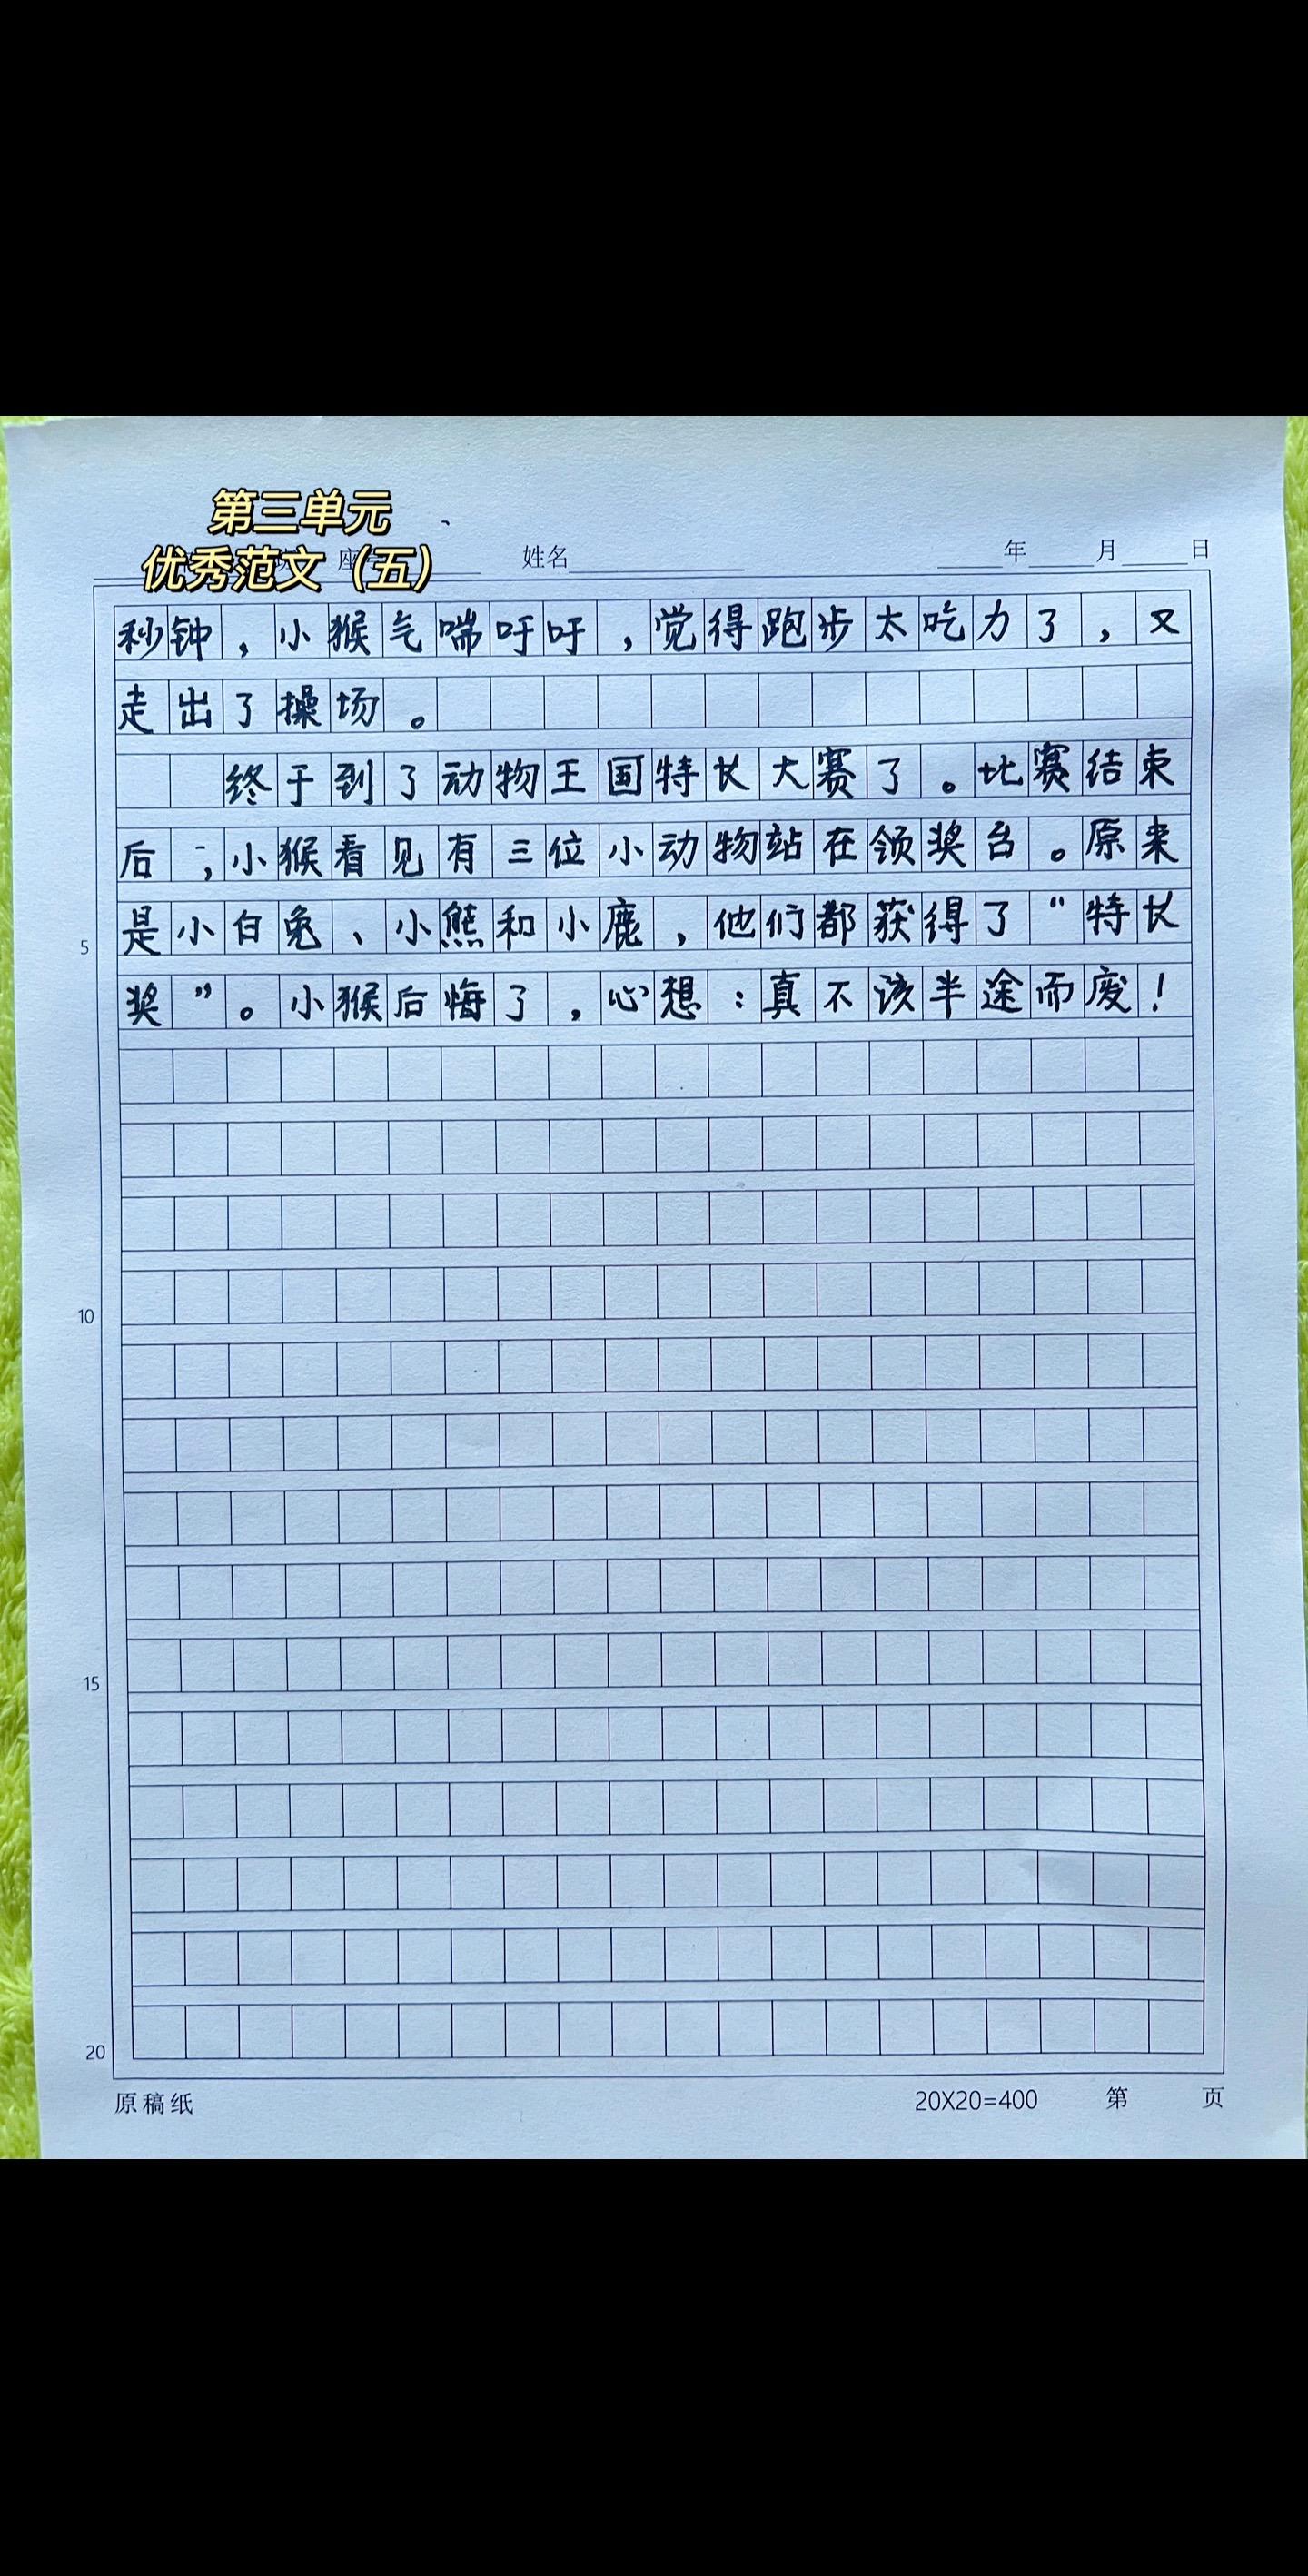 第三单元
优秀范文（五）
座 姓名 年 月 日
秒钟，小猴气喘吁吁，觉得跑步太吃力了，又
走出了操场。
终于到了动物王国特长大赛了。比赛结束
后，小猴看见有三位小动物站在领奖台。原来
是小白兔、小熊和小鹿，他们都获得了“特长
5
奖”。小猴后悔了，心想：真不该半途而废！
10
15
20
原稿纸 20X20=400 第 页